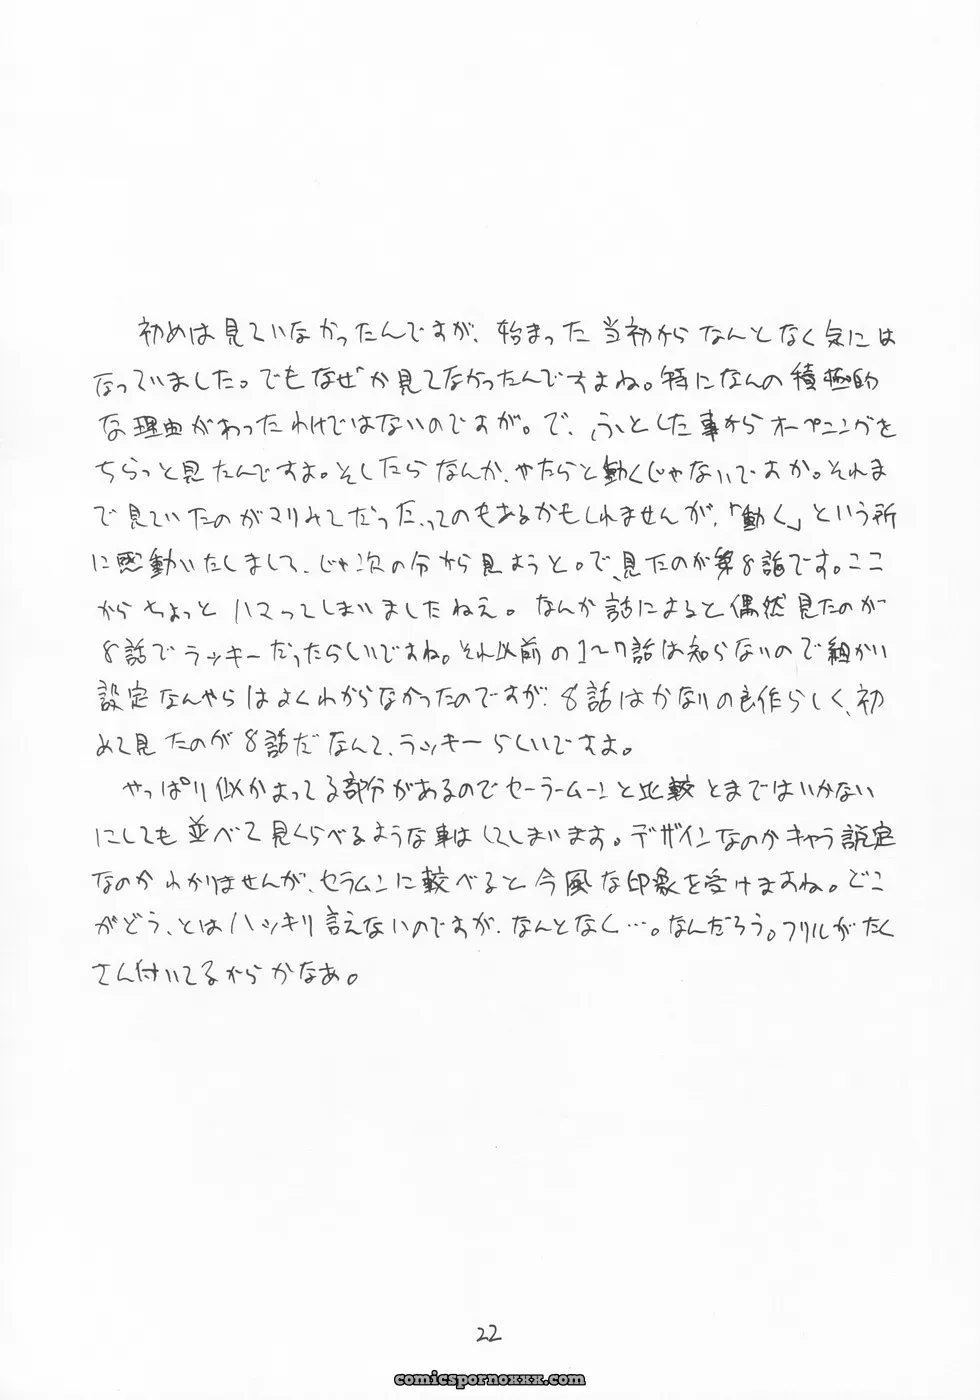 初めは見ていなかったんですが、始まった当初からなんとなく気には
なっていました。でもなぜか見てなかったんですよね。特になんの積極的
な理由があったわけではないのですが。で、ふとした事からオープニングを
ちらっと見たんですよ。そしたらなんか、やたらと動くじゃないですか。それま
で見ていたのがマリみてだった、ってのもあるかもしれませんが、「動く」という所
に感動いたしまして、じゃ次の分から見ようと。で、見たのが第8話です。ここ
からちょっとハマってしまいましたねえ。なんか話によると偶然見たのが
8話でラッキーだったらしいですね。それ以前の1〜7話は知らないので細かい
設定なんやらはよくわからなかったのですが、8話はかなりの良作らしく、初
めて見たのが8話だなんて、ラッキーらしいですよ。
やっぱり似かよってる部分があるのでセーラームーンと比較とまではいかない
にしても並べて見くらべるような事はしてしまいます。デザインなのかキャラ設定
なのかわかりませんが、セラムンに較べると今風な印象を受けますね。どこ
がどう、とはハッキリ言えないのですが、なんとなく…。なんだろう。フリルがたく
さん付いてるからかなあ。
22
comicspornoxxx.com